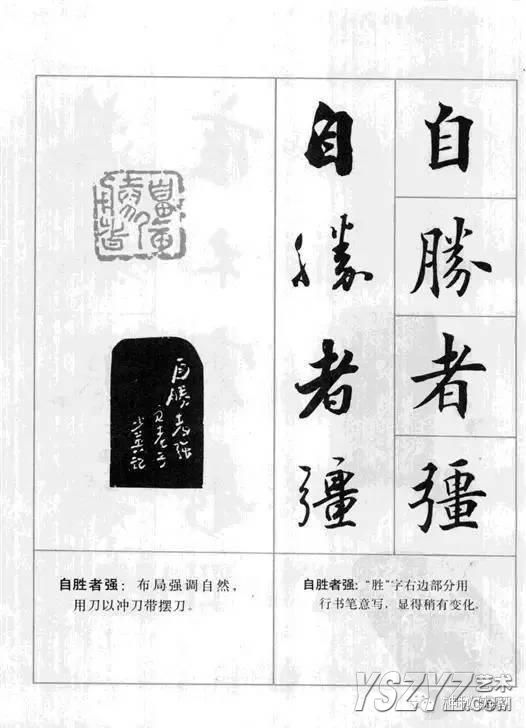 自
勝
者
彊
自
勝
者
彊
自勝者強
自胜者强：布局强调自然，
用刀以冲刀带摆刀。
自胜者强：“胜”字右边部分用
行书笔意写，显得稍有变化。
YSZYZ艺术
.COM